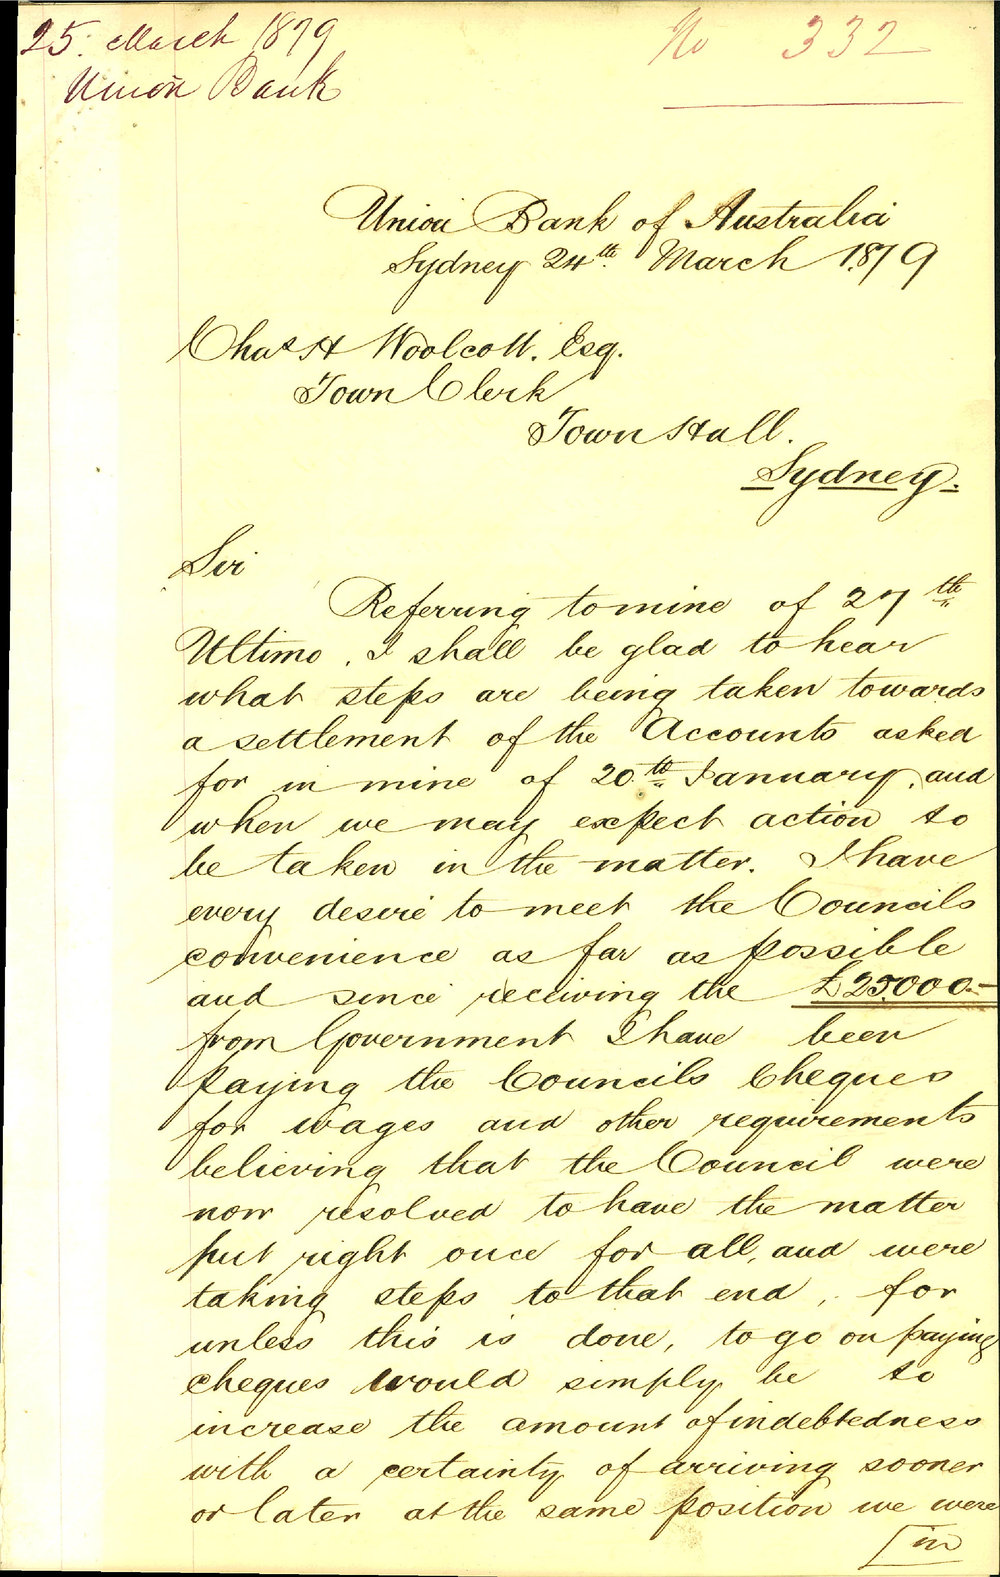 25. March 1879
Union Bank
No 332
Union Bank of Australia
Sydney 24th March 1879
Chas H Woolcott. Esq.
Town Clerk
Town Hall.
Sydney.
Sir
Referring to mine of 27th
Ultimo. I shall be glad to hear
what steps are being taken towards
a settlement of the Accounts asked
for in mine of 20th January, and
when we may expect action to
be taken in the matter. I have
every desire to meet the Councils
convenience as far as possible
and since receiving the £25000.-
from Government I have been
paying the Councils Cheques
for wages and other requirements
believing that the Council were
now resolved to have the matter
put right once for all, and were
taking steps to that end, for
unless this is done, to go on paying
cheques would simply be to
increase the amount of indebtedness
with a certainty of arriving sooner
or later at the same position we were
[in